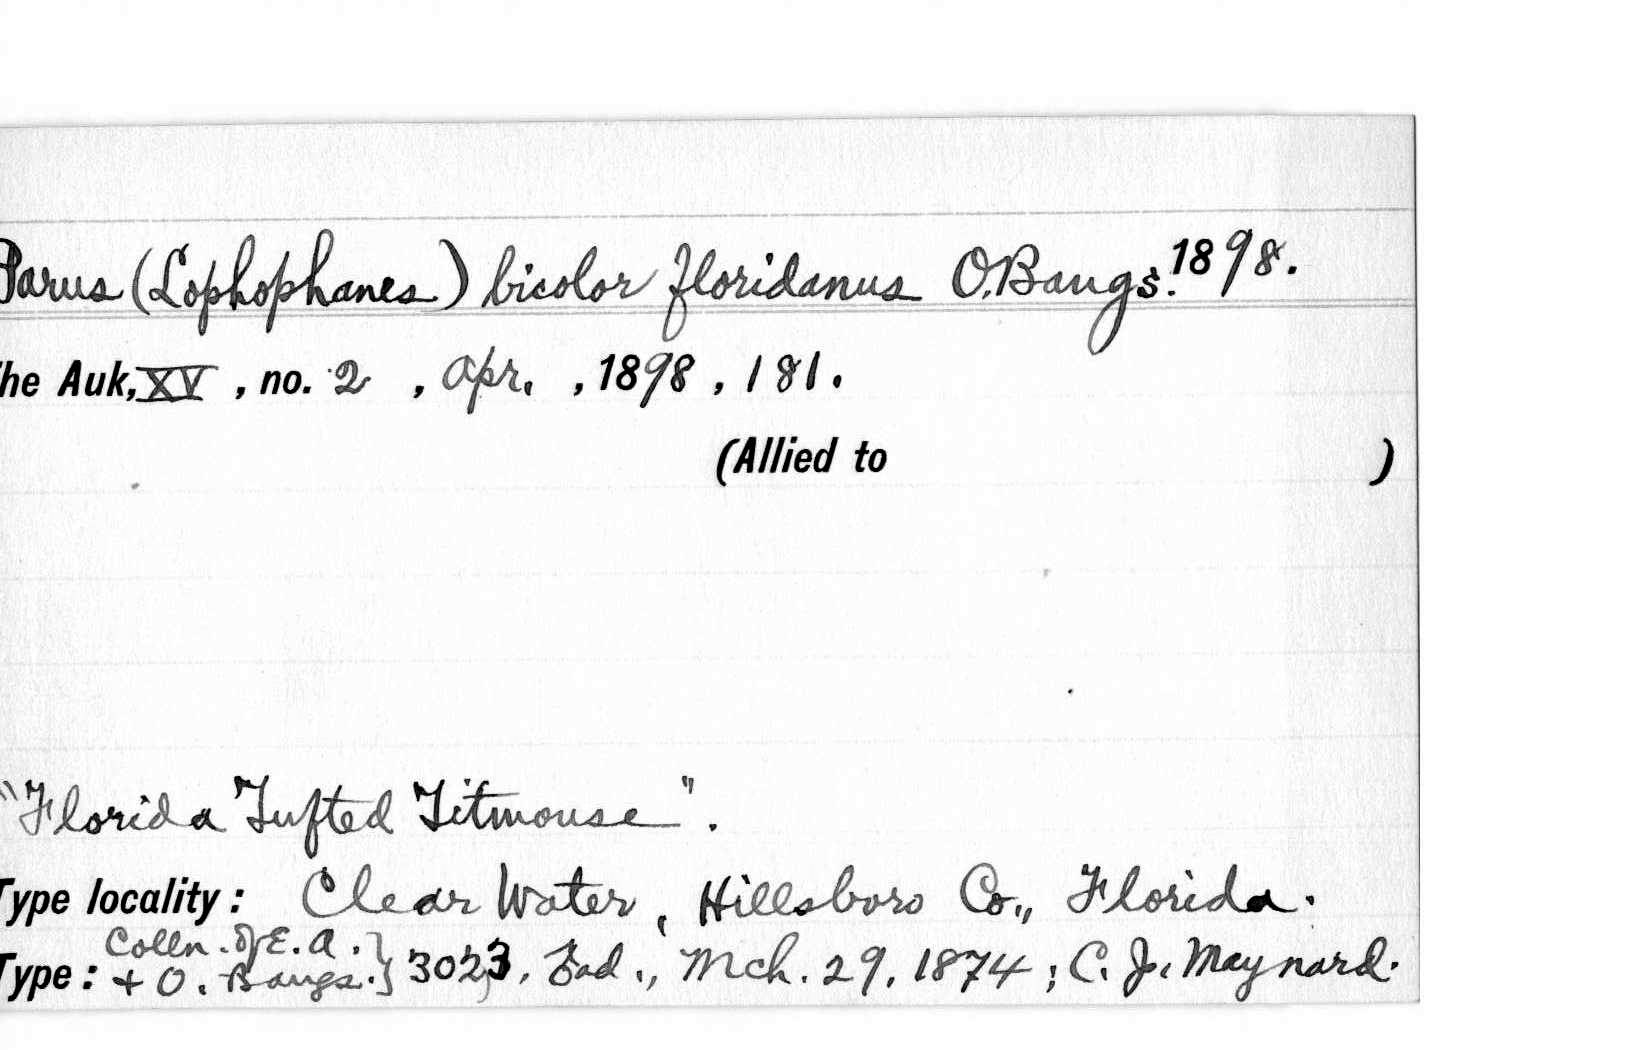 Parus (Lophophanes) bicolor floridanus O. Bangs. 1898.
The Auk, XV, no. 2, Apr., 1898, 181.
(Allied to )
"Florida Tufted Titmouse".
Type locality: Clear Water, Hillsboro Co., Florida.
Colln. of E. A.
Type: + O. Bangs. } 3023, ad., Mch. 29, 1874; C. J. Maynard.